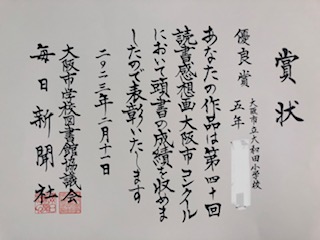 賞状
優良賞
大阪市立大和田小学校
五年
あなたの作品は第四十回
読書感想画大阪市コンクール
において頭書の成績を収めま
したので表彰いたします
二〇二三年二月十一日
大阪市学校図書館協議会
毎日新聞社